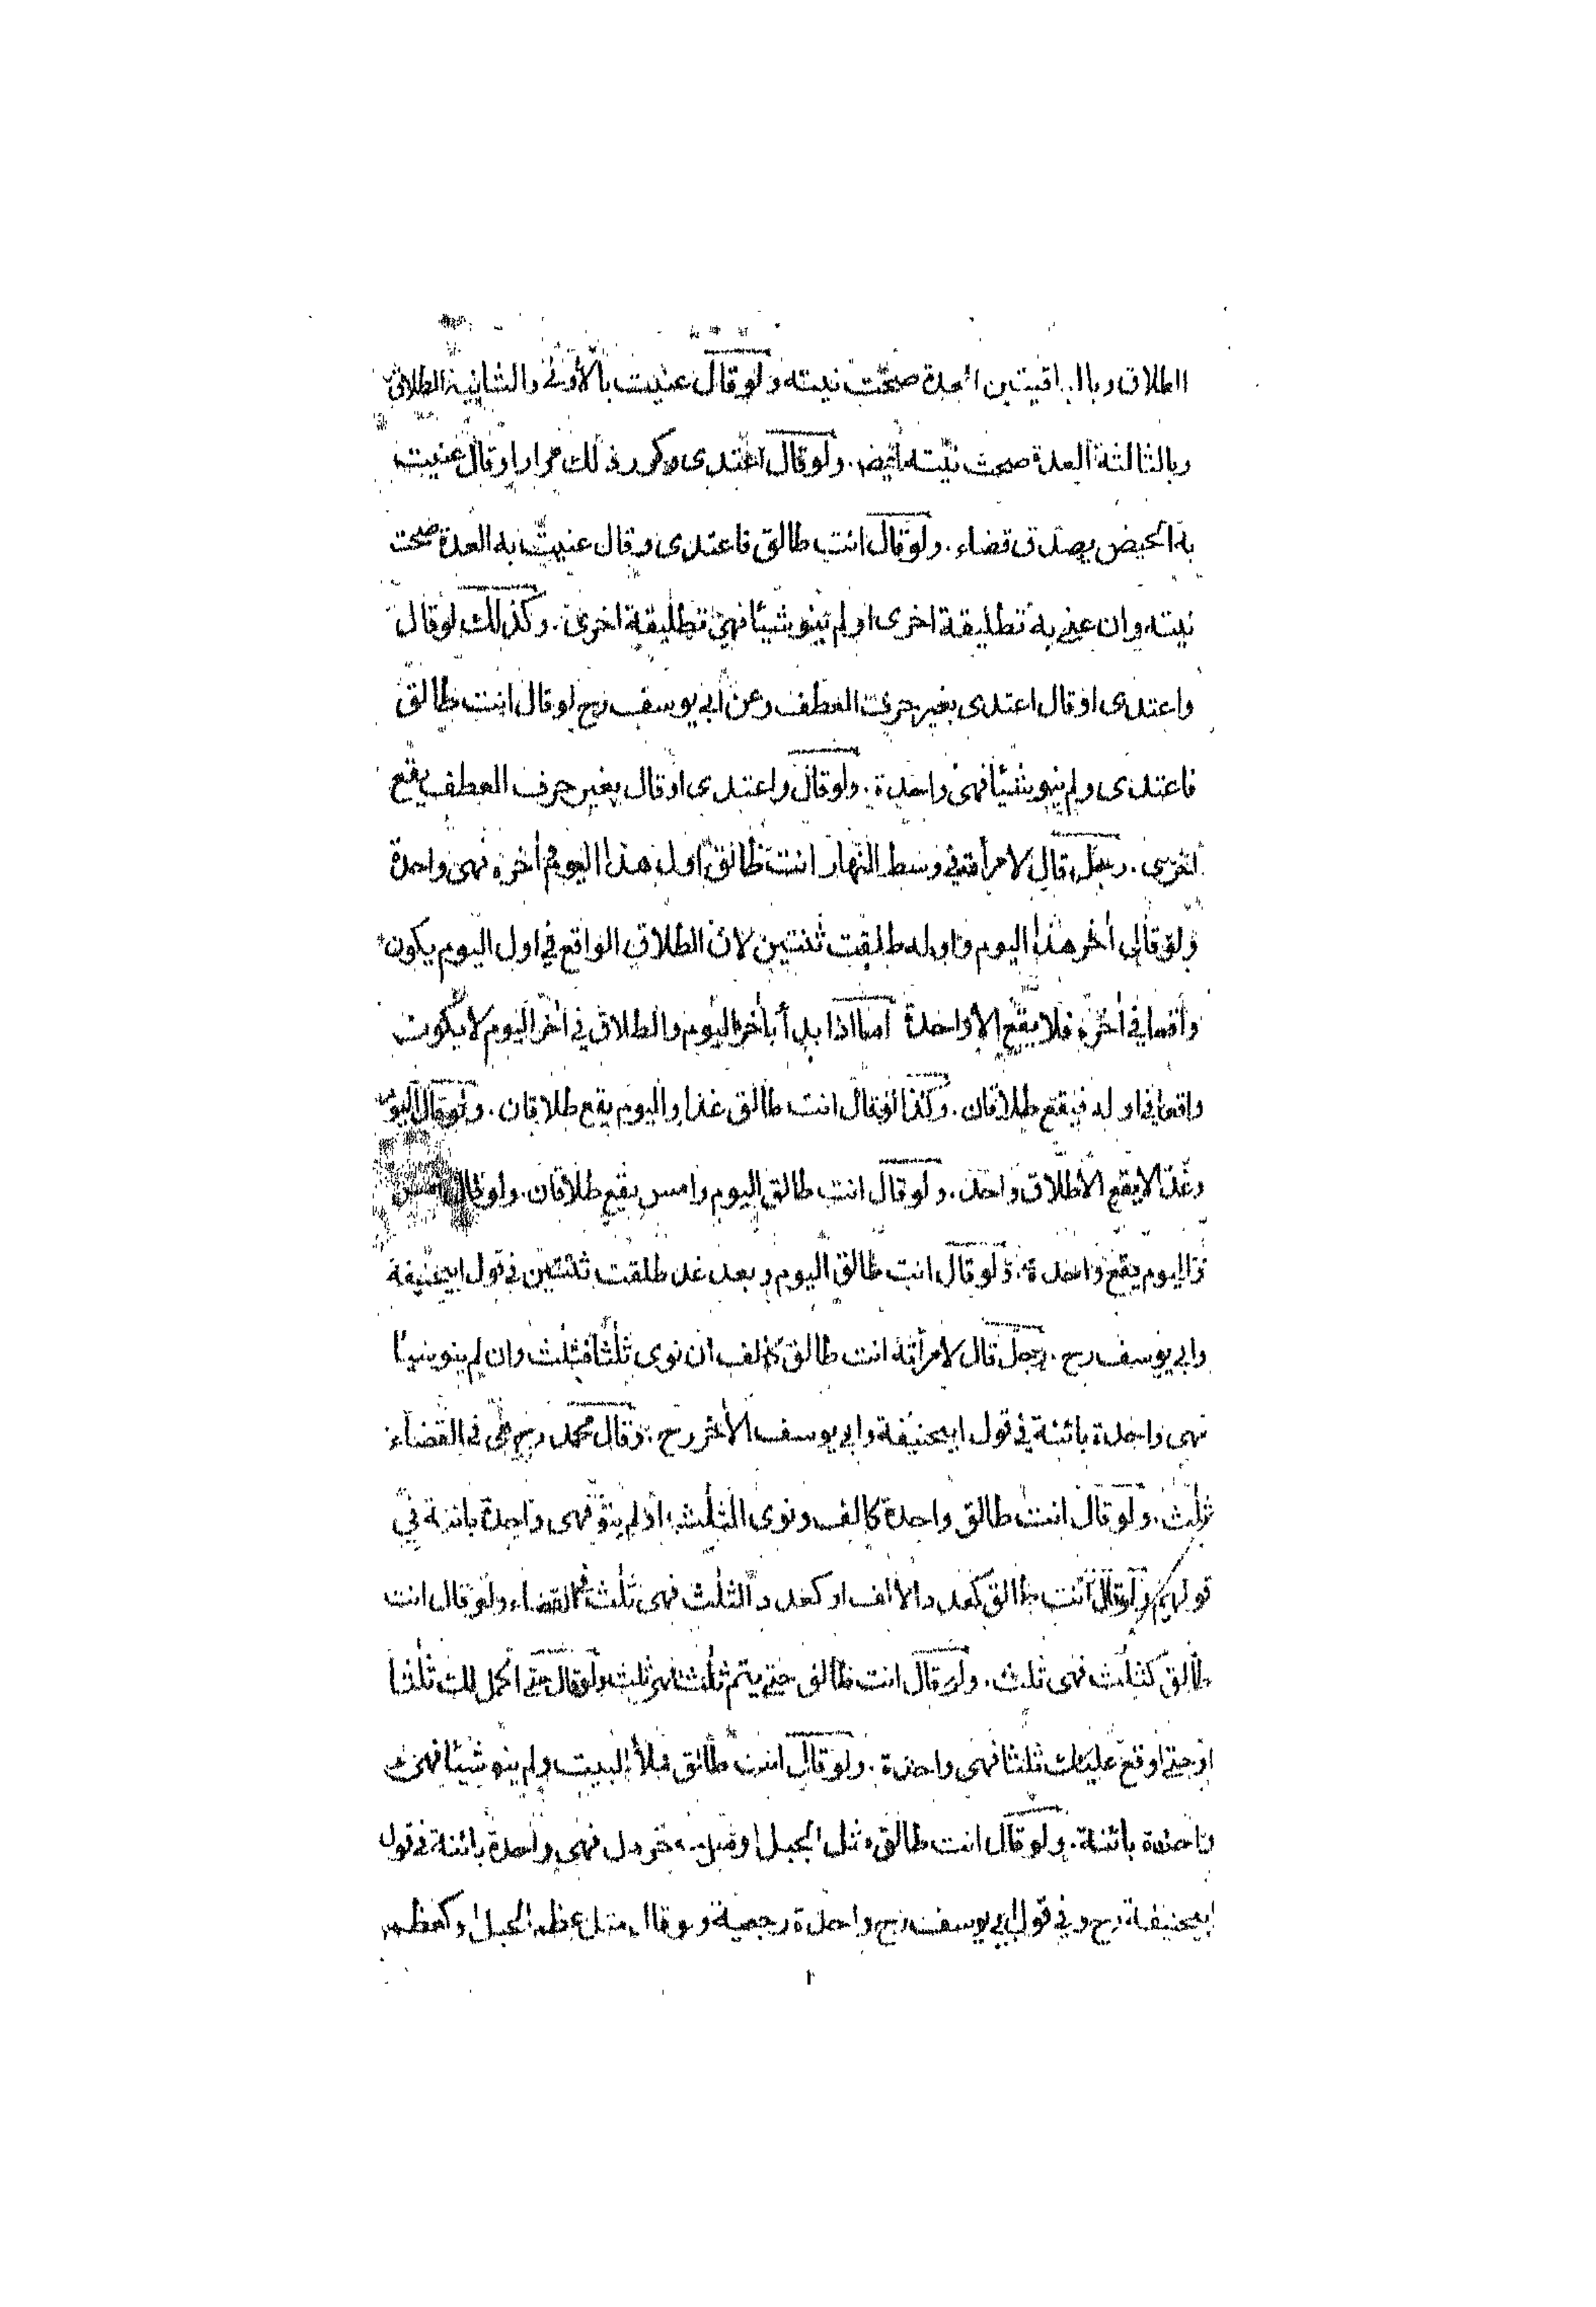 الطلاق وبالباقيتين العدة صحت نيته ولو قال عنيت بالأولى والثانية الطلاق
وبالثالثة العدة صحت نيته ايضا. ولو قال اعتدى وكرر ذلك مرارا وقال عنيت
به الحيض يصدق قضاء. ولو قال انت طالق فاعتدى وقال عنيت به العدة صحت
نيته وان عنى به تطليقة اخرى او لم ينو شيئا فهى تطليقة اخرى. وكذلك لو قال
واعتدى او قال اعتدى بغير حرف العطف وعن ابى يوسف رح لو قال انت طالق
فاعتدى ولم ينو شيئا فهى واحدة. ولو قال واعتدى او قال بغير حرف العطف يقع
اخرى. رجل قال لامرأته فى وسط النهار انت طالق اول هذا اليوم واخره فهى واحدة
ولو قال اخر هذا اليوم واوله طلقت ثنتين لان الطلاق الواقع فى اول اليوم يكون
واقعا فى اخره فلا يقع الا واحدة اما اذا بدأ باخر اليوم والطلاق فى اخر اليوم لا يكون
واقعا فى اوله فيقع طلاقان. وكذا لو قال انت طالق غدا واليوم يقع طلاقان. ولو قال اليوم
وغدا لا يقع الا طلاق واحد. ولو قال انت طالق اليوم وامس يقع طلاقان. ولو قال امس
واليوم يقع واحدة. ولو قال انت طالق اليوم وبعد غد طلقت ثنتين فى قول ابيحنيفة
وابى يوسف رح. رجل قال لامرأته انت طالق كالف ان نوى ثلثا فثلث وان لم ينو شيئا
فهى واحدة بائنة فى قول ابيحنيفة وابى يوسف الأخر رح. وقال محمد رح هى فى القضاء
ثلث. ولو قال انت طالق واحدة كالف ونوى الثلث او لم ينو فهى واحدة بائنة فى
قولهم ولو قال انت طالق كعدد الالف او كعدد الثلث فهى ثلث فى القضاء ولو قال انت
طالق كثلث فهى ثلث. ولو قال انت طالق حتى يتم ثلثا فهى ثلث ولو قال حتى اكمل لك ثلثا
او حتى اوقع عليك ثلثا فهى واحدة. ولو قال انت طالق ملأ البيت ولم ينو شيئا فهى
واحدة بائنة. ولو قال انت طالق مثل الجبل او مثل حبة خردل فهى واحدة بائنة فى قول
ابيحنيفة رح وفى قول ابى يوسف رح واحدة رجعية ولو قال مثل عظم الجبل او كعظم